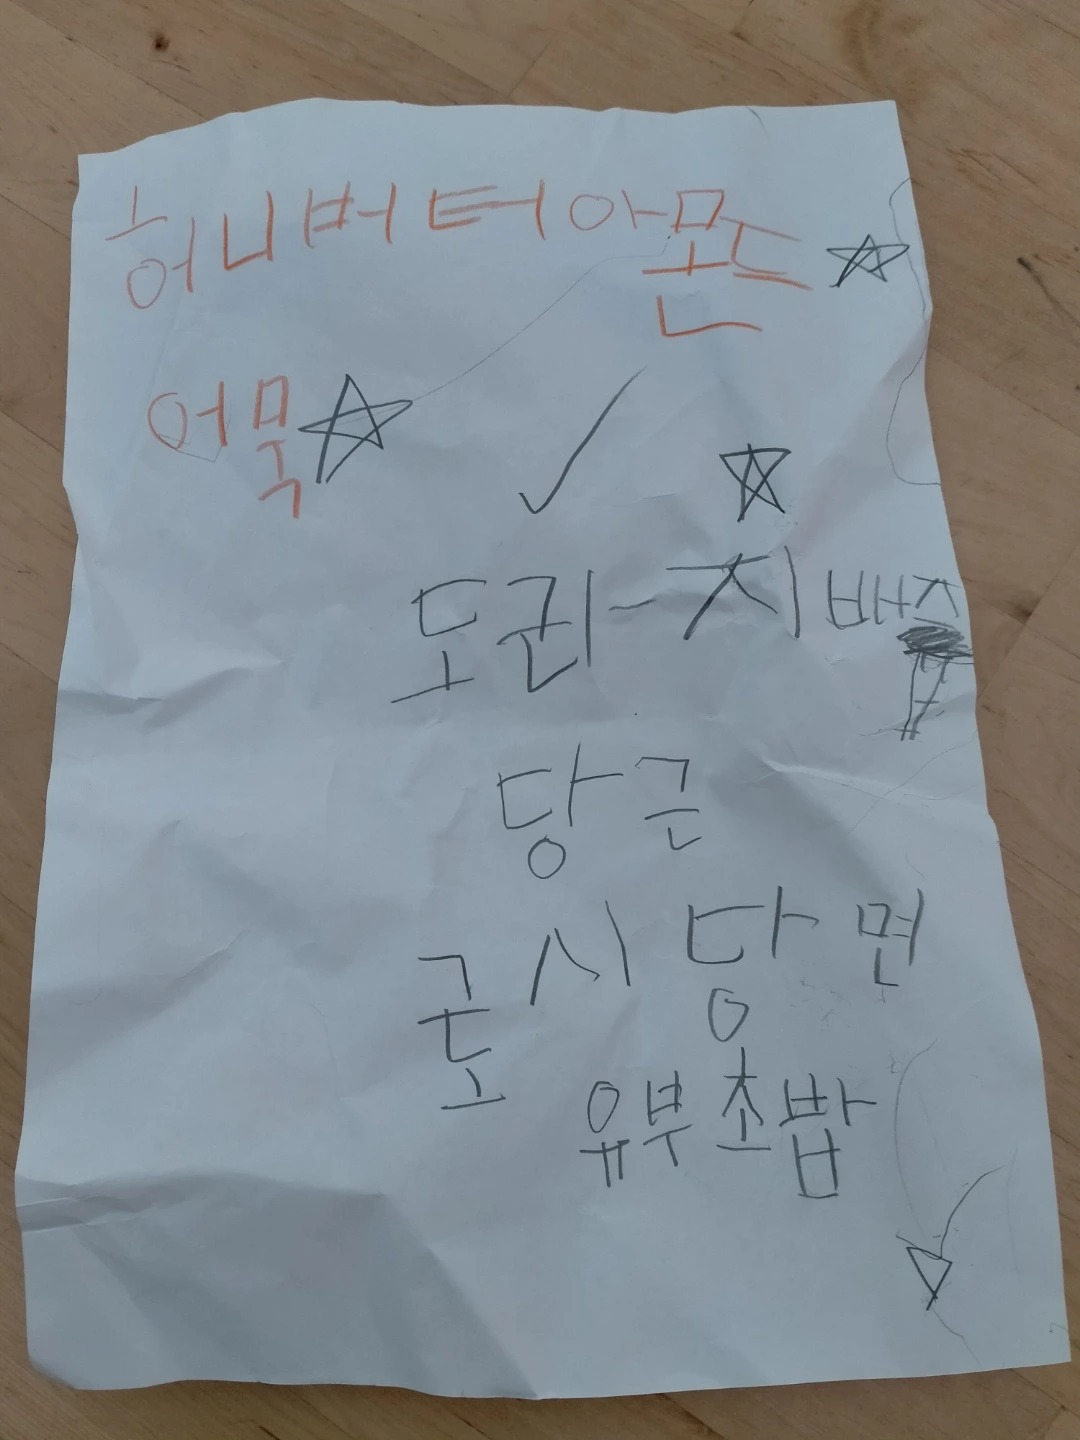 허니버터아몬드
어묵
도라지배즙
당근
당면
유부초밥